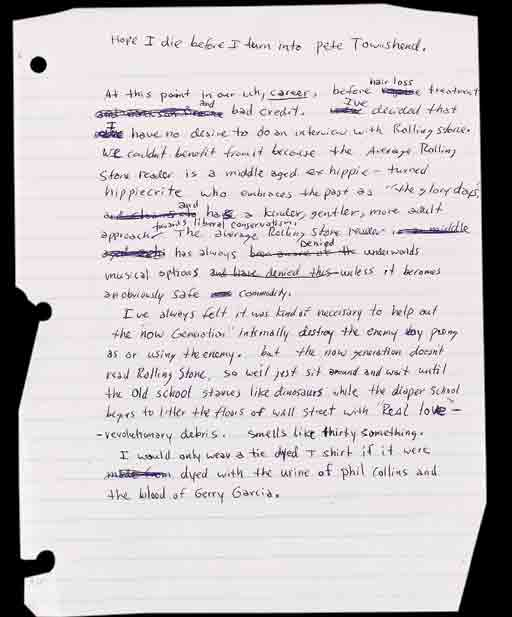 Hope I die before I turn into pete Townshend.
hair loss
At this point in our uh, career, before treatment
and I've
bad credit. decided that
I
have no desire to do an interview with Rolling Stone.
WE couldnt benefit from it because the Average Rolling
Stone reader is a middle aged ex hippie - turned
hippiecrite who embraces the past as "the glory days",
and
has a kinder, gentler, more adult
towards liberal conservatism.
approach The average Rolling Stone reader is a middle
Denied
has always underwonds
musical options and have denied this unless it becomes
an obviously safe commodity.
I've always felt it was kind of necessary to help out
the 'now Generation' internally destroy the enemy by posing
as or using the enemy. but the now generation doesnt
read Rolling Stone, so we'll jest sit around and wait until
the Old school starves like dinosaurs while the diaper school
begins to litter the floors of wall street with Real love -
- revolutionary debris. smells like thirty something.
I would only wear a tie dyed T shirt if it were
made from dyed with the urine of phil Collins and
the blood of Gerry Garcia.